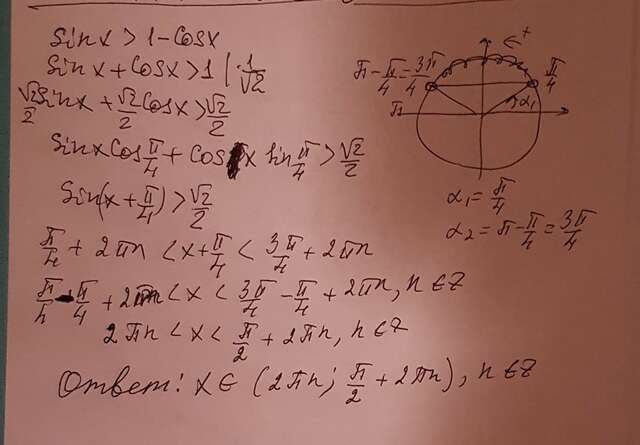 sinx > 1 - cosx
sinx + cosx > 1 | · 1/√2
√2/2 sinx + √2/2 cosx > √2/2
sinx cos π/4 + cos x sin π/4 > √2/2
sin(x + π/4) > √2/2
π/4 + 2πn < x + π/4 < 3π/4 + 2πn
π/4 - π/4 + 2πn < x < 3π/4 - π/4 + 2πn, n ∈ Z
2πn < x < π/2 + 2πn, n ∈ Z
Ответ: x ∈ (2πn; π/2 + 2πn), n ∈ Z
+
π - π/4 = 3π/4
π/4
π
α₁
α₁ = π/4
α₂ = π - π/4 = 3π/4